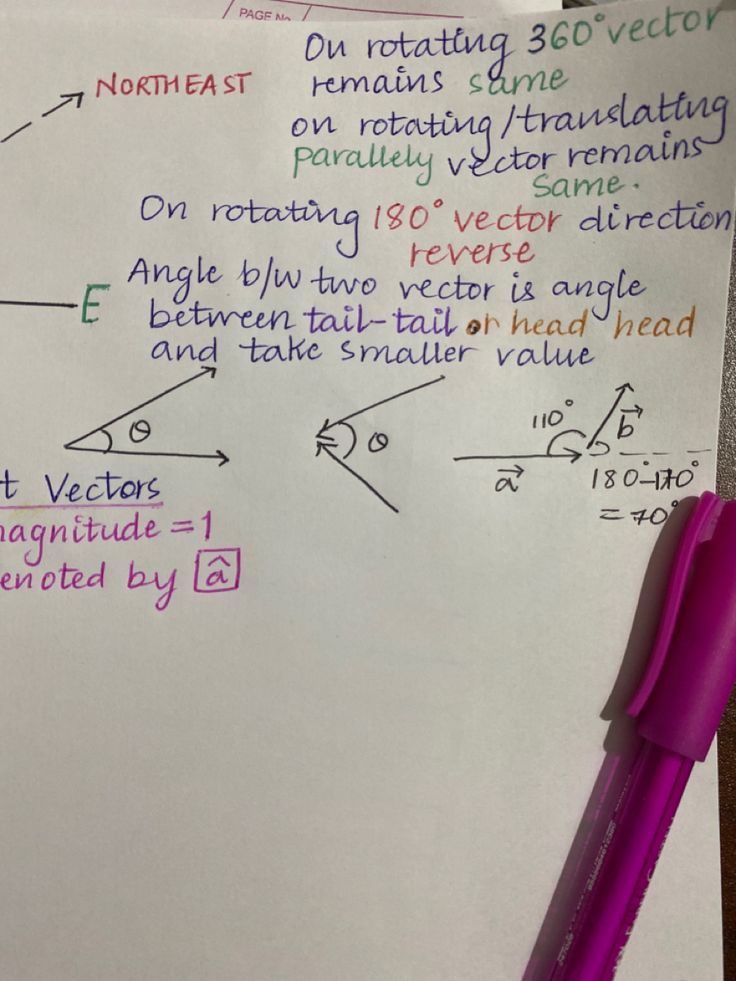 PAGE No.
On rotating 360° vector
NORTHEAST
remains same
on rotating/translating
parallely vector remains
same.
On rotating 180° vector direction
reverse
E
Angle b/w two vector is angle
between tail-tail or head head
and take smaller value
θ
θ
110°
b⃗
a⃗
180°-110°
= 70°
t Vectors
magnitude = 1
enoted by â